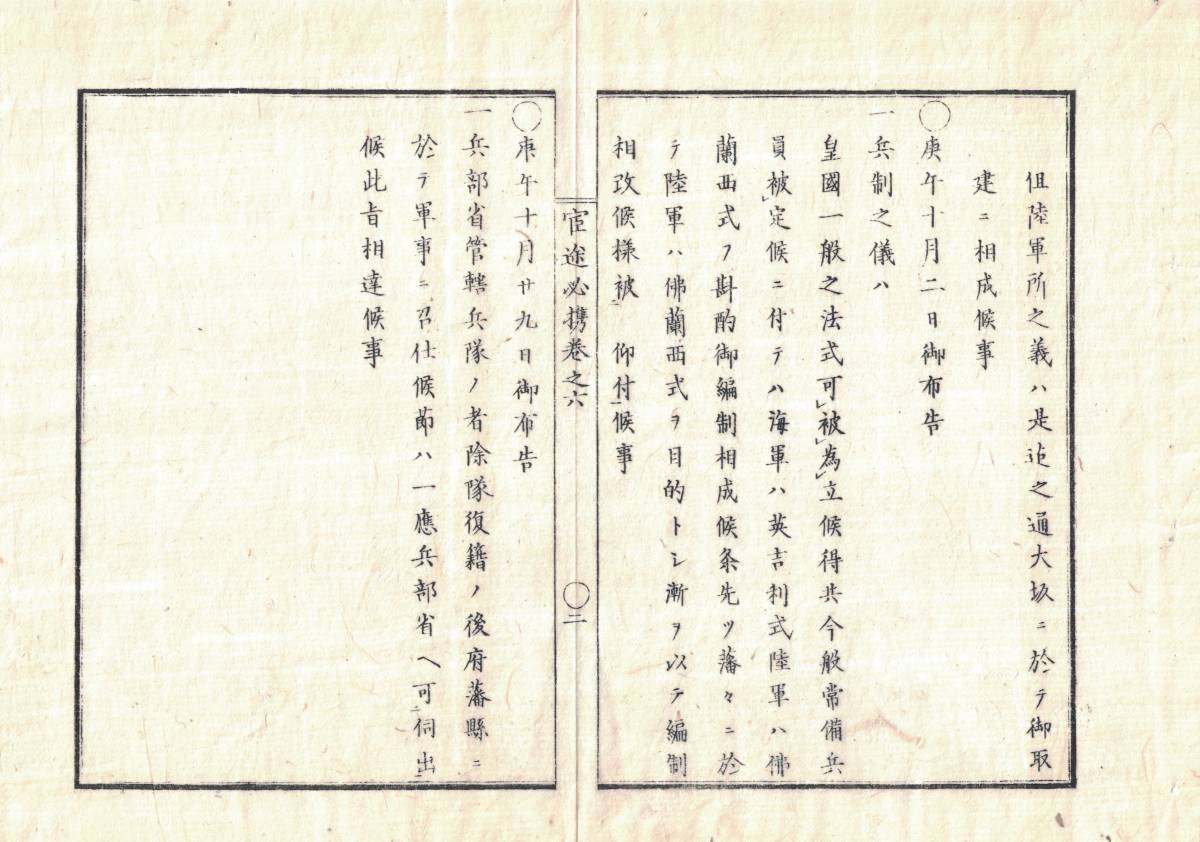 但陸軍所之義ハ是迄之通大坂ニ於テ御取
建ニ相成候事
○庚午十月二日御布告
一兵制之儀ハ
皇國一般之法式可被為立候得共今般常備兵
員被定候ニ付テハ海軍ハ英吉利式陸軍ハ佛
蘭西式ヲ斟酌御編制相成候条先ツ藩々ニ於
テ陸軍ハ佛蘭西式ヲ目的トシ漸ヲ以テ編制
相改候様被 仰付候事
宦途必携巻之六 ○二
○庚午十月廿九日御布告
一兵部省管轄兵隊ノ者除隊復籍ノ後府藩縣ニ
於テ軍事ニ召仕候節ハ一應兵部省ヘ可伺出
候此旨相達候事